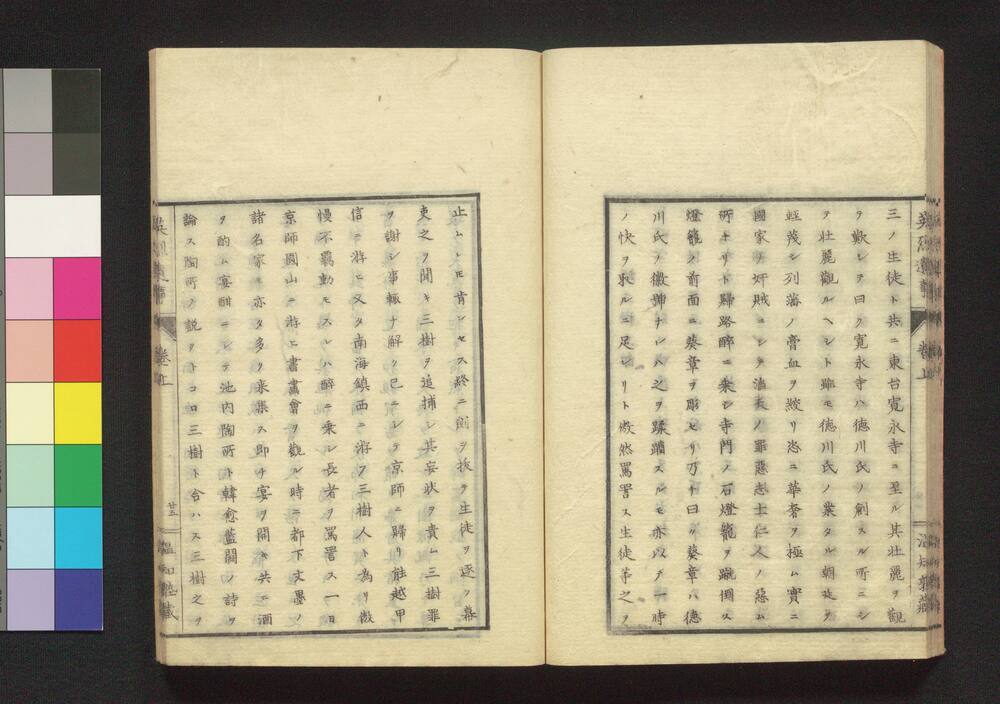 三ノ生徒ト共ニ東台寛永寺ニ至ル其壮麗ヲ観
ヲ歎シテ曰ク寛永寺ハ徳川氏ノ創スル所ニシ
ヲ壮麗觀ルヘシト雖モ徳川氏ノ業タル朝廷ヲ
軽蔑シ列藩ノ膏血ヲ絞リ恣ニ華奢ヲ極ム實ニ
國家ノ奸賊ニシテ ノ罪惡志士仁人ノ惡ム
所ナリト歸路醉ニ乗シ寺門ノ石燈籠ヲ蹴倒ス
燈籠ノ前面ニ葵章ヲ彫セリ乃ト曰ク葵章ハ徳
川氏ノ徽號ナレハ之ヲ蹂躙スルモ亦以テ一時
ノ快ヲ取ルニ足レリト傲然罵詈ス生徒等之ヲ
止ムレモ肯ンセス終ニ劍ヲ抜テ生徒ヲ逐フ幕
吏之ヲ聞キ三樹ヲ追捕シ其妄狀ヲ責ム三樹罪
ヲ謝シ事輙ナ解ク已ニシテ京師ニ歸リ能越甲
信ニ游ヒ又タ南海鎮西ニ游フ三樹人ト為リ傲
慢不羈動モスレハ醉ニ乗シ長者ヲ罵詈ス一日
京師圓山ニ游ヒ書畫會ヲ觀ル時ニ都下文墨ノ
諸名家モ亦タ多ク来集ス即チ宴ヲ開キ共ニ酒
ヲ酌ム宴酣ニシテ池内陶所ト韓愈藍關ノ詩ヲ
論ス陶所ノ説クトコロ三樹ト合ハス三樹之ヲ
卷上
廿五